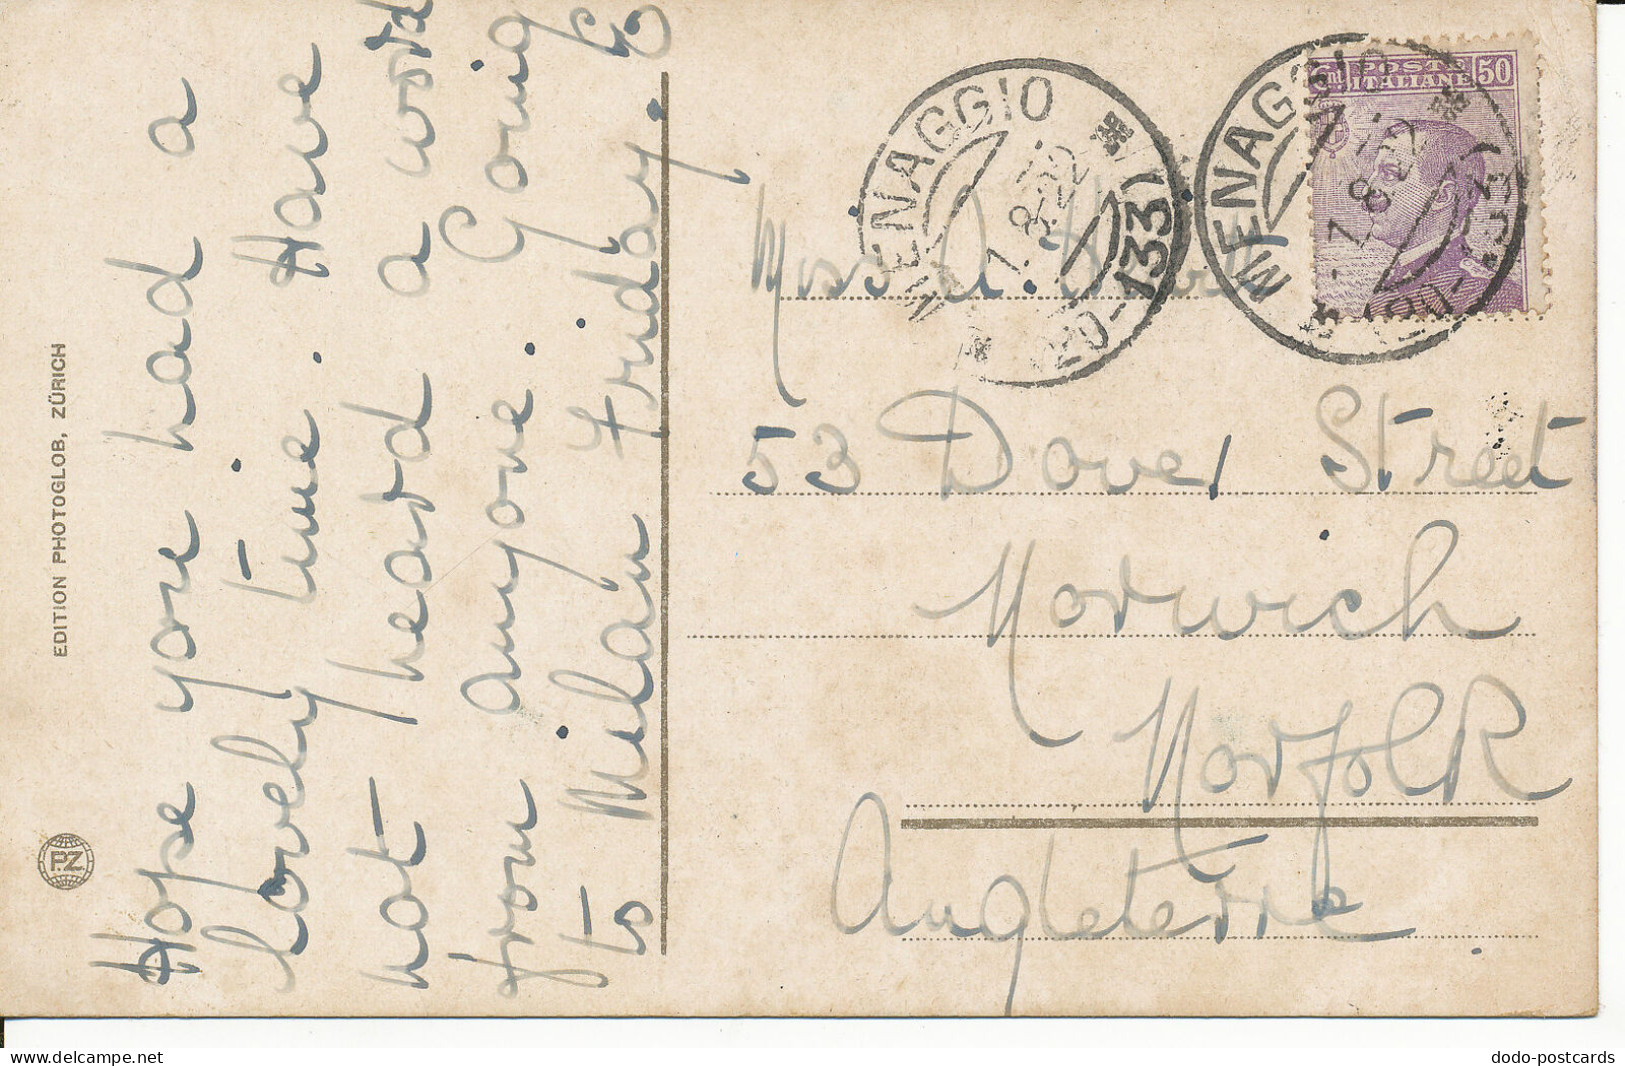 Hope you had a
lovely time. Have
not heard a word
from anyone. Going
to Milan Friday.
EDITION PHOTOGLOB, ZÜRICH
P.Z.
MENAGGIO
1.8.22
(133)
MENAGGIO
1.8.22
POSTE
ITALIANE
50
Miss A.
53 Dover Street
Norwich
Norfolk
Angleterre.
dodo-postcards